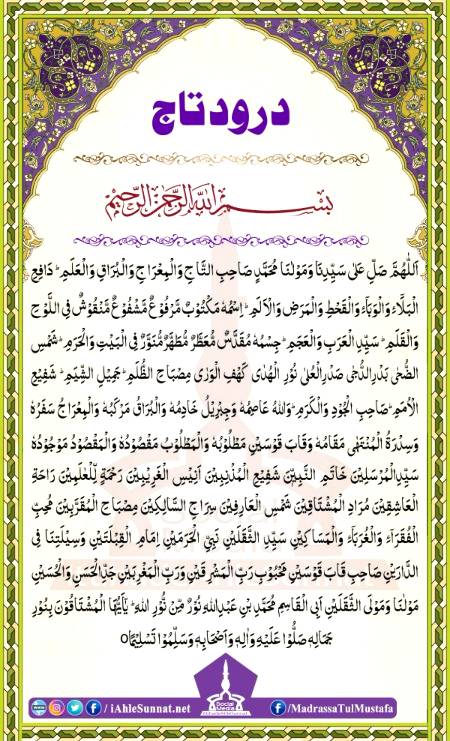 درود تاج
بسم الله الرحمن الرحيم
اَللّٰهُمَّ صَلِّ عَلٰى سَيِّدِنَا وَمَوْلٰنَا مُحَمَّدٍ صَاحِبِ التَّاجِ وَالْمِعْرَاجِ وَالْبُرَاقِ وَالْعَلَمِ ؕ دَافِعِ
الْبَلَآءِ وَالْوَبَآءِ وَالْقَحْطِ وَالْمَرَضِ وَالْاَلَمِ ؕ اِسْمُهٗ مَكْتُوْبٌ مَّرْفُوْعٌ مَّشْفُوْعٌ مَّنْقُوْشٌ فِى اللَّوْحِ
وَالْقَلَمِ ؕ سَيِّدِ الْعَرَبِ وَالْعَجَمِ ؕ جِسْمُهٗ مُقَدَّسٌ مُّعَطَّرٌ مُّطَهَّرٌ مُّنَوَّرٌ فِى الْبَيْتِ وَالْحَرَمِ ؕ شَمْسِ
الضُّحٰى بَدْرِ الدُّجٰى صَدْرِ الْعُلٰى نُوْرِ الْهُدٰى كَهْفِ الْوَرٰى مِصْبَاحِ الظُّلَمِ ؕ جَمِيْلِ الشِّيَمِ ؕ شَفِيْعِ
الْاُمَمِ ؕ صَاحِبِ الْجُوْدِ وَالْكَرَمِ ؕ وَاللّٰهُ عَاصِمُهٗ وَجِبْرِيْلُ خَادِمُهٗ وَالْبُرَاقُ مَرْكَبُهٗ وَالْمِعْرَاجُ سَفَرُهٗ
وَسِدْرَةُ الْمُنْتَهٰى مَقَامُهٗ وَقَابَ قَوْسَيْنِ مَطْلُوْبُهٗ وَالْمَطْلُوْبُ مَقْصُوْدُهٗ وَالْمَقْصُوْدُ مَوْجُوْدُهٗ
سَيِّدِ الْمُرْسَلِيْنَ خَاتَمِ النَّبِيّٖنَ شَفِيْعِ الْمُذْنِبِيْنَ اَنِيْسِ الْغَرِيْبِيْنَ رَحْمَةٍ لِّلْعٰلَمِيْنَ رَاحَةِ
الْعَاشِقِيْنَ مُرَادِ الْمُشْتَاقِيْنَ شَمْسِ الْعَارِفِيْنَ سِرَاجِ السَّالِكِيْنَ مِصْبَاحِ الْمُقَرَّبِيْنَ مُحِبِّ
الْفُقَرَآءِ وَالْغُرَبَآءِ وَالْمَسَاكِيْنِ سَيِّدِ الثَّقَلَيْنِ نَبِىِّ الْحَرَمَيْنِ اِمَامِ الْقِبْلَتَيْنِ وَسِيْلَتِنَا فِى
الدَّارَيْنِ صَاحِبِ قَابَ قَوْسَيْنِ مَحْبُوْبِ رَبِّ الْمَشْرِقَيْنِ وَرَبِّ الْمَغْرِبَيْنِ جَدِّ الْحَسَنِ وَالْحُسَيْنِ
مَوْلٰنَا وَمَوْلَى الثَّقَلَيْنِ اَبِى الْقَاسِمِ مُحَمَّدِ بْنِ عَبْدِ اللّٰهِ نُوْرٍ مِّنْ نُّوْرِ اللّٰهِ ؕ يٰٓاَيُّهَا الْمُشْتَاقُوْنَ بِنُوْرِ
جَمَالِهٖ صَلُّوْا عَلَيْهِ وَاٰلِهٖ وَاَصْحَابِهٖ وَسَلِّمُوْا تَسْلِيْمًا
/ iAhleSunnat.net
Social
Media
/MadrassaTulMustafa